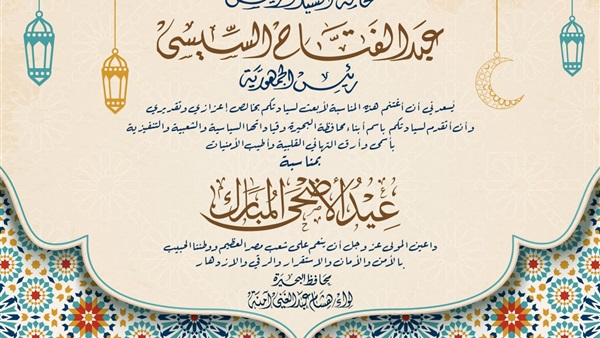 فخامة السيد الرئيس
عبد الفتاح السيسي
رئيس الجمهورية
يُسعدني أن أغتنم هذه المناسبة لأبعث لسيادتكم بخالص إعزازي وتقديري
وأن أتقدم لسيادتكم باسم أبناء محافظة البحيرة وقياداتها السياسية والشعبية والتنفيذية
بأسمى وأرق التهاني القلبية وأطيب الأمنيات
بمناسبة
عيد الأضحى المبارك
داعين المولى عز وجل أن ينعم على شعب مصر العظيم ووطننا الحبيب
بالأمن والأمان والاستقرار والرقي والازدهار
محافظ البحيرة
لواء/ هشام عبد الغني آمنة